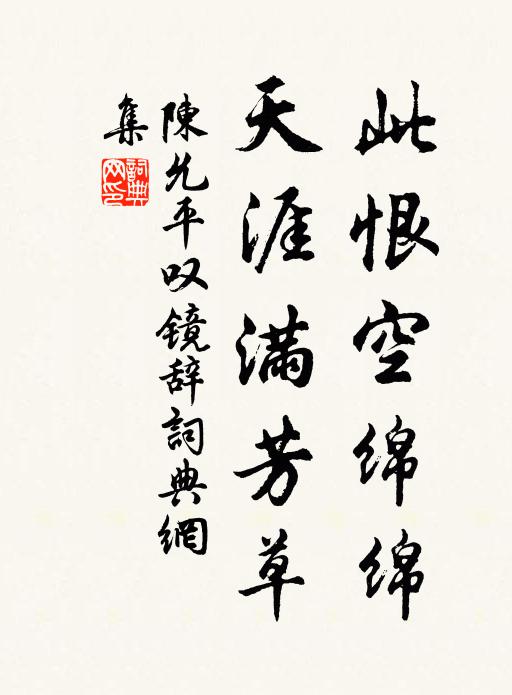 此恨空绵绵
天涯满芳草
陳允平叹镜辞詞典網
集
詞典網印